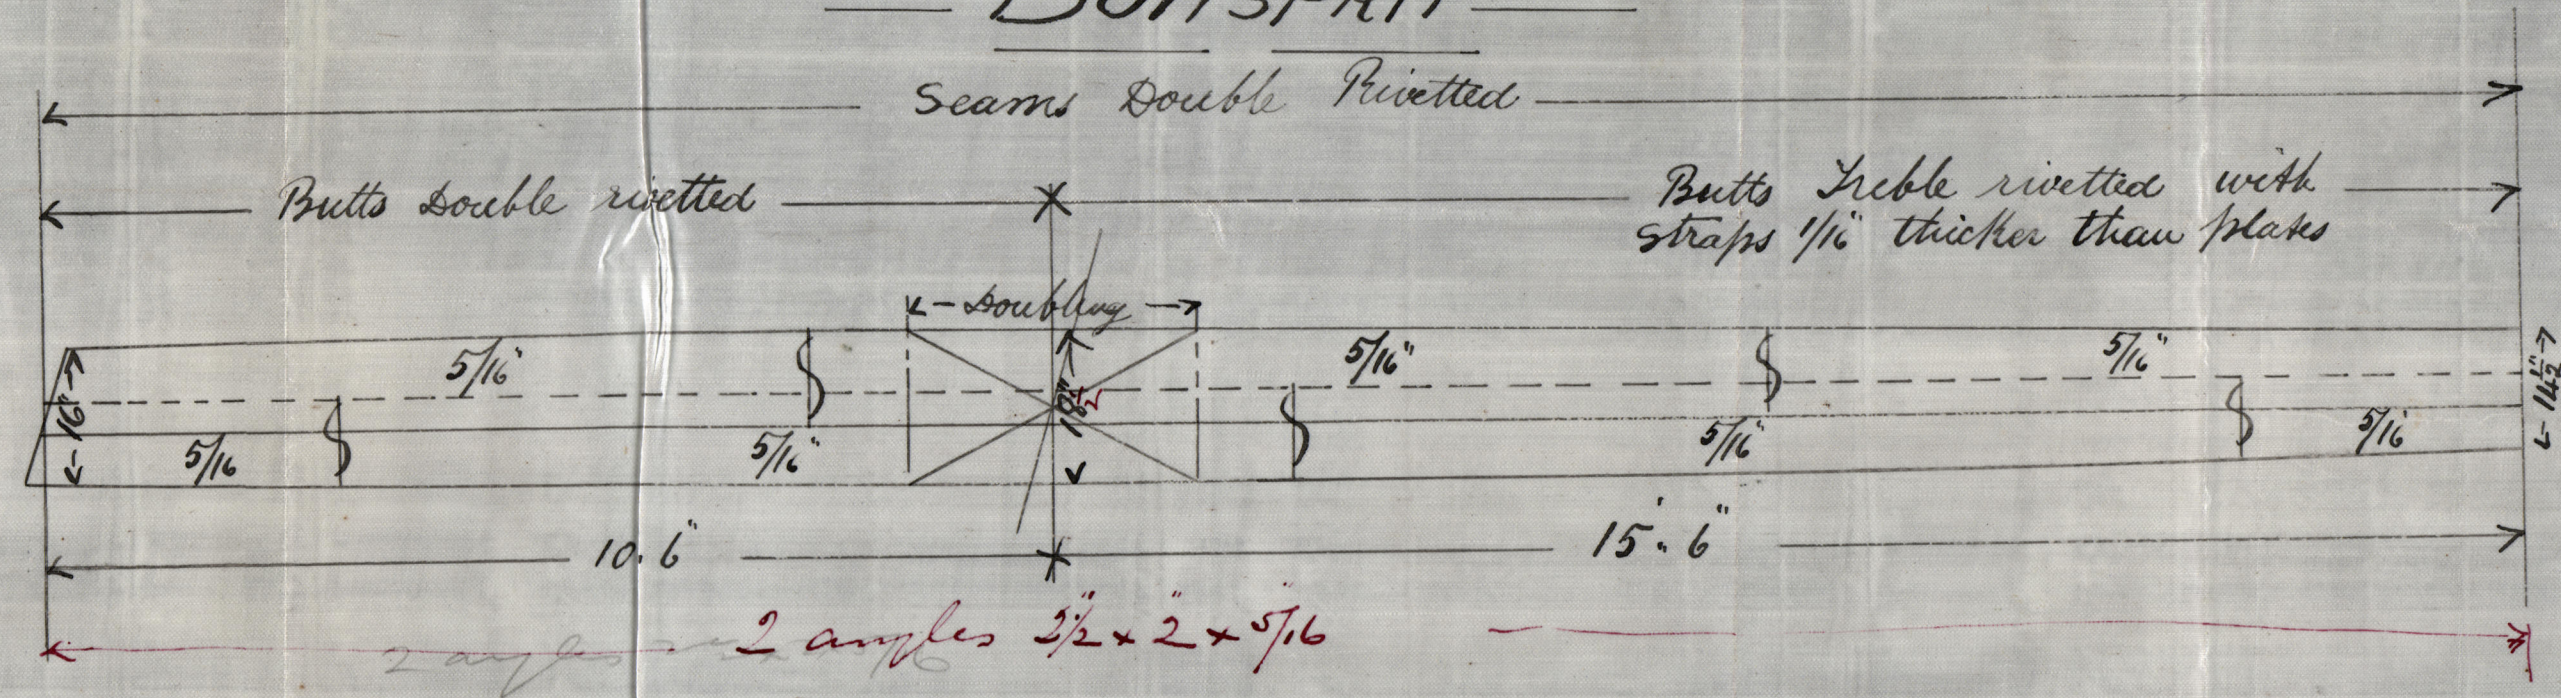 Seams Double Rivetted
Butts Double rivetted
Butts Treble rivetted with
straps 1/16" thicker than plates
Doubling
5/16"
5/16"
5/16"
16"
18 1/2"
14 1/2"
5/16
5/16"
5/16"
5/16
10.6"
15'.6"
2 angles 2 1/2" x 2" x 5/16"
2 angles